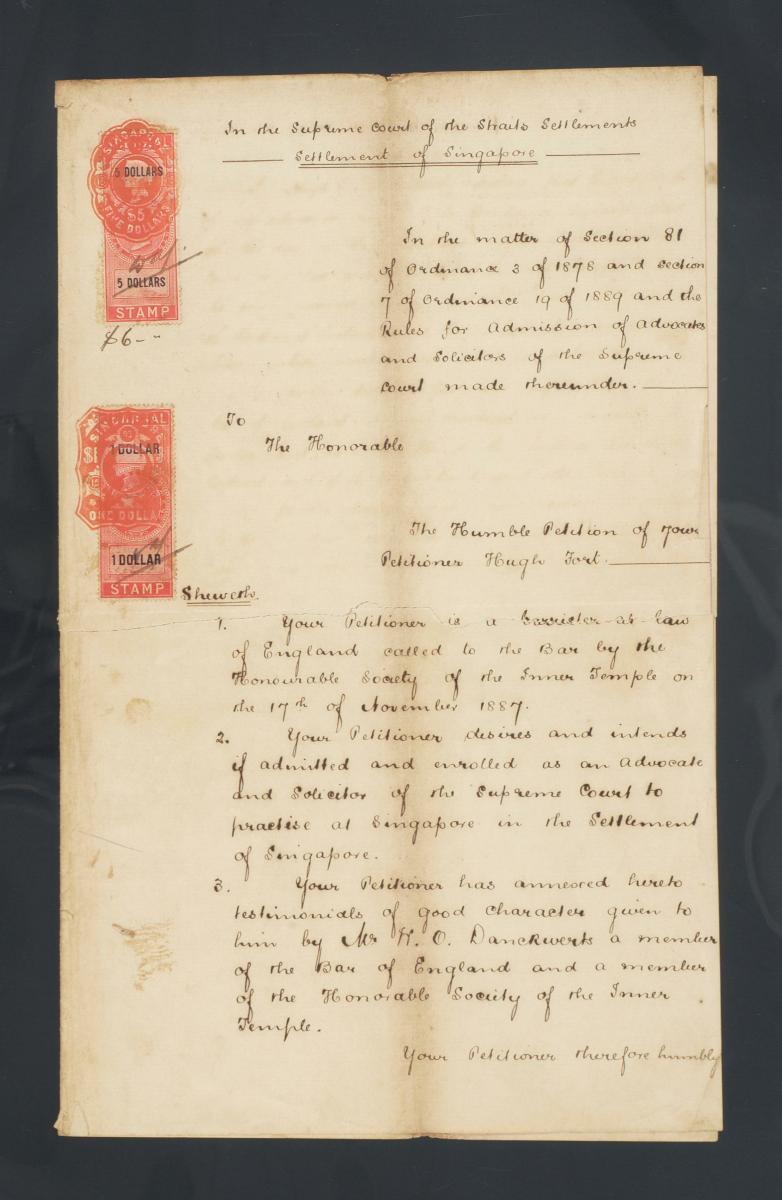 In the Supreme Court of the Straits Settlements
Settlement of Singapore
SINGAPORE
5 DOLLARS
$5
FIVE DOLLARS
5 DOLLARS
STAMP
$6--
In the matter of Section 81
of Ordinance 3 of 1878 and Section
7 of Ordinance 19 of 1889 and the
Rules for Admission of Advocates
and Solicitors of the Supreme
Court made thereunder.
To
The Honorable
1 DOLLAR
ONE DOLLAR
1 DOLLAR
STAMP
The Humble Petition of your
Petitioner Hugh Fort.
Sheweth.
1. Your Petitioner is a barrister-at-law
of England called to the Bar by the
Honourable Society of the Inner Temple on
the 17th of November 1887.
2. Your Petitioner desires and intends
if admitted and enrolled as an Advocate
and Solicitor of the Supreme Court to
practise at Singapore in the Settlement
of Singapore.
3. Your Petitioner has annexed hereto
testimonials of good character given to
him by Mr W. O. Danckwerts a member
of the Bar of England and a member
of the Honorable Society of the Inner
Temple.
Your Petitioner therefore humbly